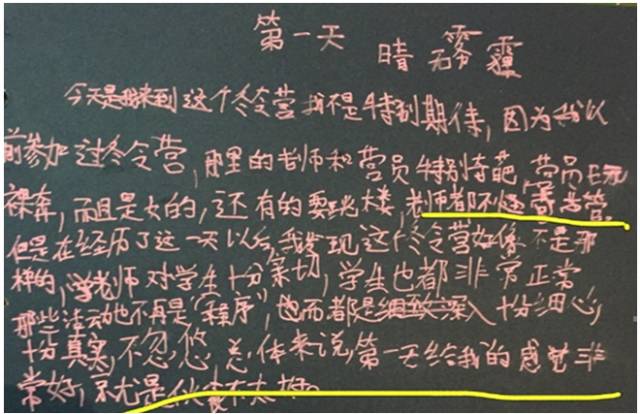 第一天 晴 无雾霾
今天是我来到这个冬令营我不是特别期待,因为我以
前参加过冬令营,那里的老师和营员特别奇葩,营员
裸奔,而且是女的,还有的要跳楼,老师都不
但是在经历了这一天以后我发现这个冬令营好像不是那
样的,老师对学生十分亲切,学生也都非常正常
那些活动也不再是“程序”,也而都是细致深入十分细心,
十分真实,不忽悠总体来说第一天给我的感觉非
常好,尤是伙食不太好。